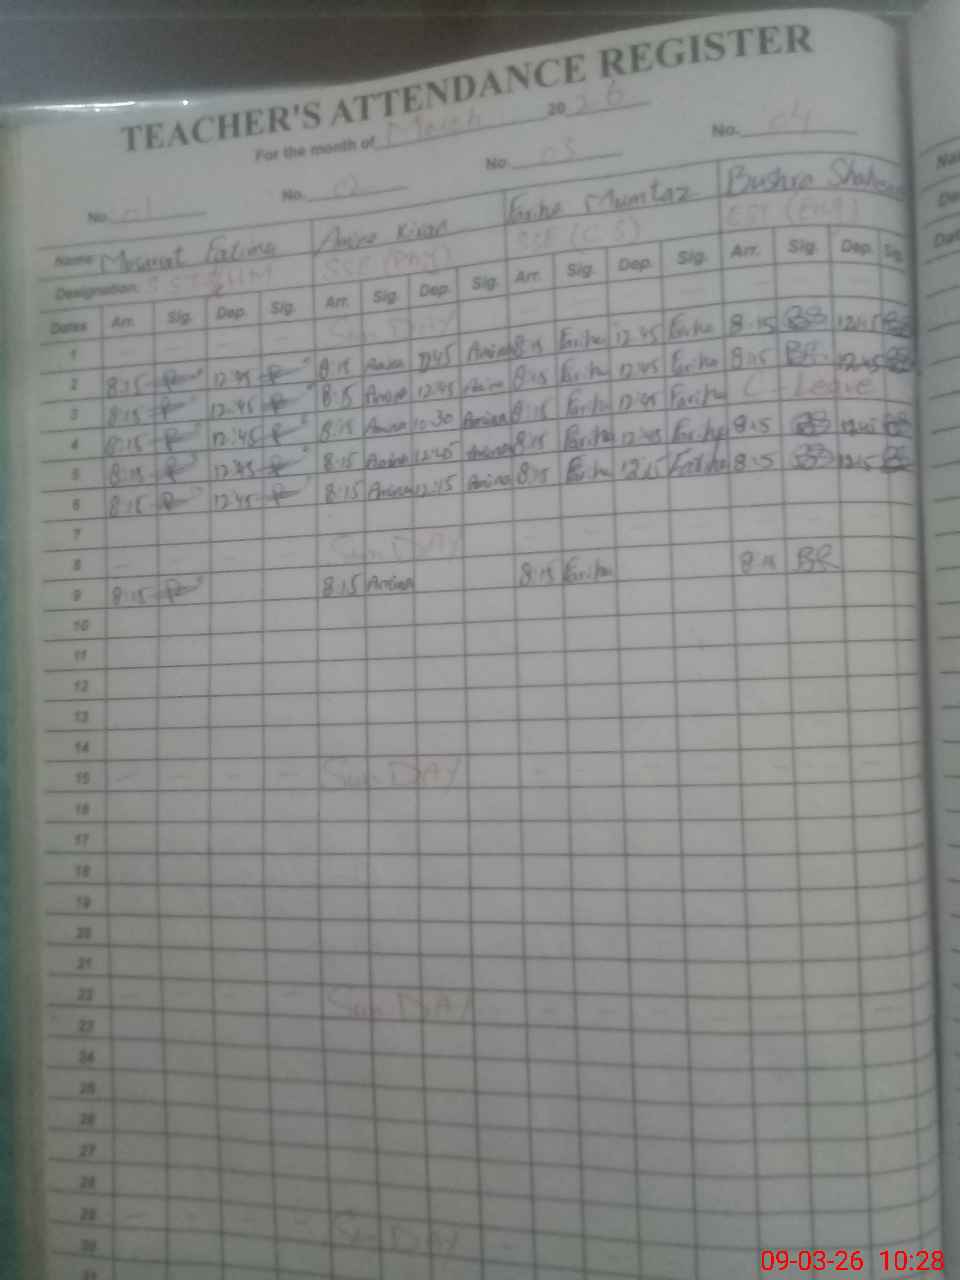 TEACHER'S ATTENDANCE REGISTER
For the month of March 2026
No. 01 No. 0 No. 03 No. 04
Name: Fatima Amina Kiran Fariha Mumtaz Bushra
Designation: SSE (Phy) SSE (C.S) EST (Eng)
Dates Arr. Sig. Dep. Sig. Arr. Sig. Dep. Sig. Arr. Sig. Dep. Sig. Arr. Sig. Dep. Sig.
1 Sun DAY
2 8:15 12:45 8:15 Amina 12:45 Amina 8:15 Fariha 12:45 Fariha 8:15 12:45
3 8:15 12:45 8:15 Amina 12:45 Amina 8:15 Fariha 12:45 Fariha 8:15 12:45
4 8:15 12:45 8:15 Amina Amina 8:15 Fariha 12:45 Fariha C - Leave
5 8:15 12:45 8:15 Amina 12:45 Amina 8:15 Fariha 12:45 Fariha 8:15 12:45
6 8:15 12:45 8:15 Amina 12:15 Amina 8:15 Fariha 12:15 Fariha 8:15 12:15
7
8 Sun DAY
9 8:15 8:15 Amina 8:15 Fariha 8:15 BR
10
11
12
13
14
15 Sun DAY
16
17
18
19
20
21
22 Sun DAY
23
24
25
26
27
28
29 Sun DAY
30
31
09-03-26 10:28